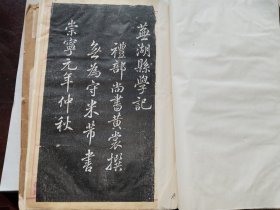 蕪湖縣學記
禮部尚書黃裳撰
無為守米芾書
崇寧元年仲秋